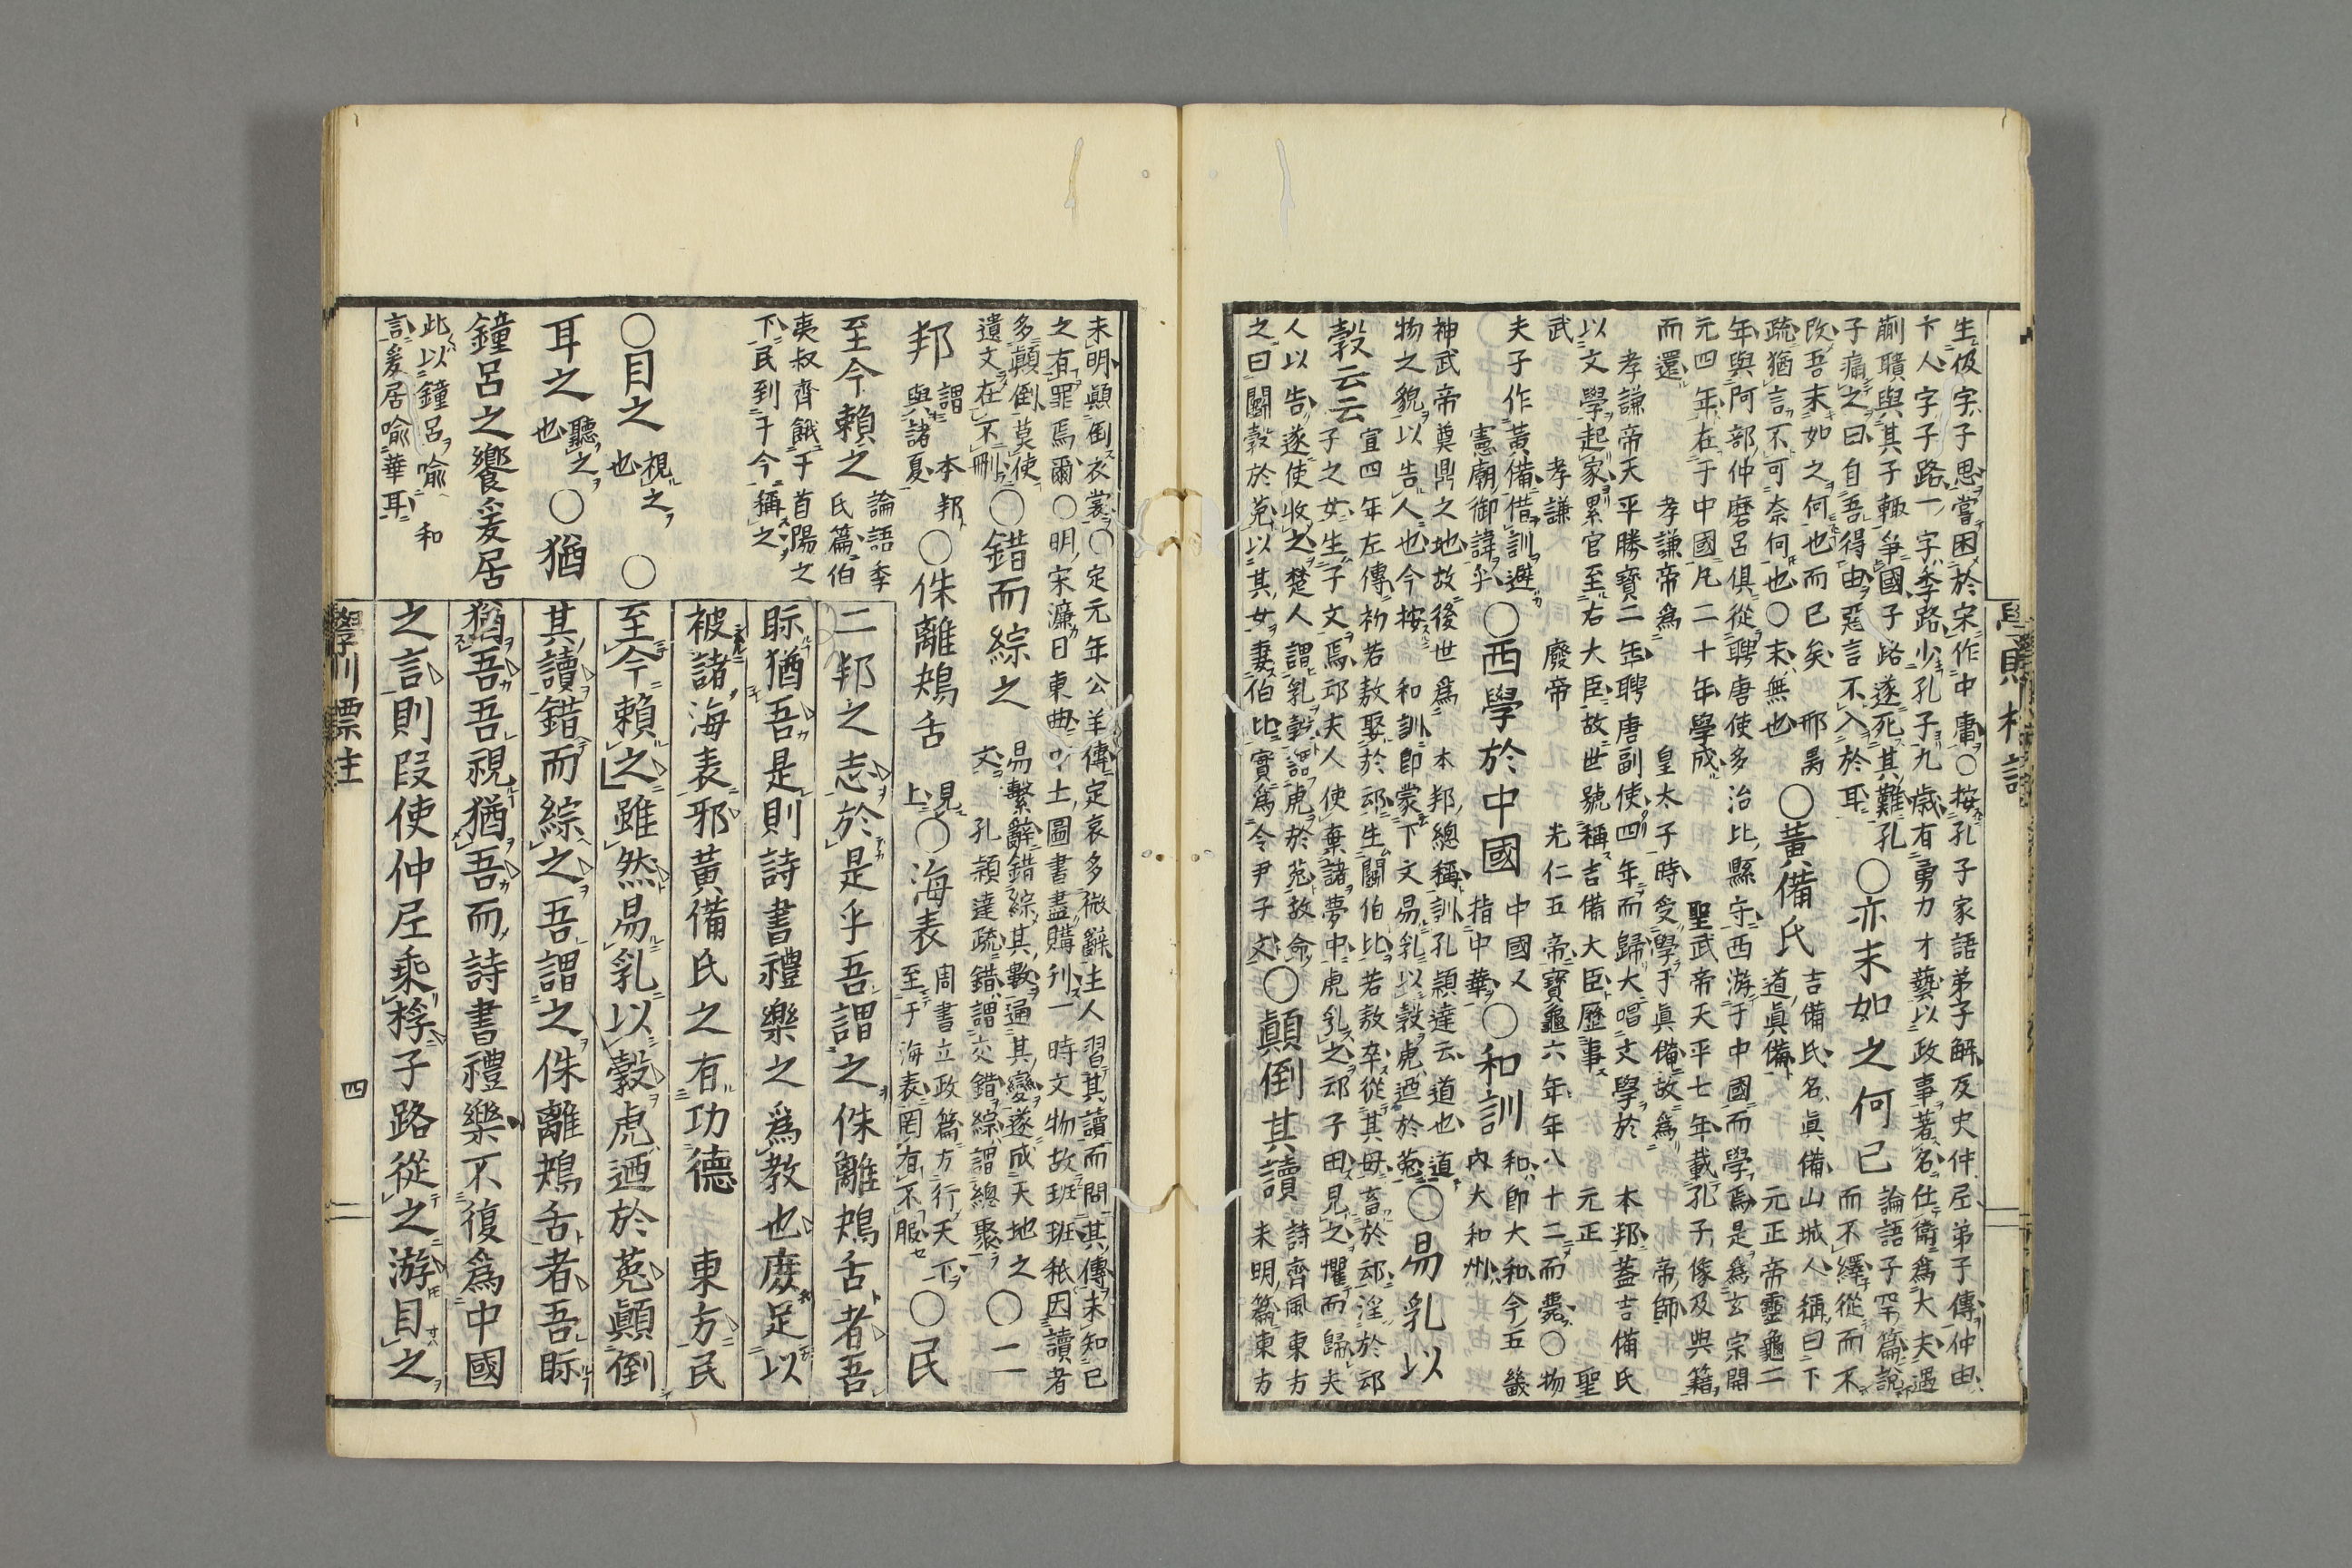 生伋字子思嘗困於宋作中庸○按孔子家語弟子解及史仲尼弟子傳仲由
卞人字子路一字季路少孔子九歳有勇力才藝以政事著名仕衛爲大夫遇
蒯聵與其子輒爭國子路遂死其難孔
子痛之曰自吾得由惡言不入於耳
○亦末如之何已
論語子罕篇說
而不繹從而不
改吾末如之何也而已矣 邢昺
疏猶言不可奈何也○末無也
○黃備氏
吉備氏名眞備山城人稱曰下
道眞備 元正帝靈龜二
年與阿部仲磨呂倶從聘唐使多治比縣守西游于中國而學焉是爲玄宗開
元四年在于中國凡二十年學成 聖武帝天平七年載孔子像及典籍
而還 孝謙帝爲 皇太子時受學于眞備故爲 帝師
孝謙帝天平勝寶二年聘唐副使四年而歸大唱文學於 本邦蓋吉備氏
以文學起家累官至右大臣故世號稱吉備大臣歷事 元正 聖
武 孝謙 廢帝 光仁五帝寶龜六年年八十二而薨○物
夫子作黃備借訓避
憲廟御諱乎
○西學於中國
中國又
指中華
○和訓
和即大和今五畿
內大和州
神武帝奠鼎之地故後世爲 本邦總稱訓孔穎達云道也道
物之貌以告人也今按 和訓即蒙下文易乳以穀虎迺於菟
○易乳以
穀云云
宣四年左傳初若敖娶於䢵生鬭伯比若敖卒從其母畜於䢵淫於䢵
子之女生子文焉䢵夫人使棄諸夢中虎乳之䢵子田見之懼而歸夫
人以告遂使收之楚人謂乳穀謂虎於菟故命
之曰鬭穀於菟以其女妻伯比實爲令尹子文
○顚倒其讀
詩齊風東方
未明篇東方
未明顚倒衣裳○定元年公羊傳定哀多微辭主人習其讀而問其傳未知己
之有罪焉爾○明宋濂日東曲中土圖書盡購刋一時文物故班班秖因讀者
多顚倒莫使
遺文在不刪
○錯而綜之
易繫辭錯綜其數通其變遂成天地之
文 孔穎達疏錯謂交錯綜謂總聚
○二
邦
謂 本邦
與諸夏
○侏離鴂舌
見
上
○海表
周書立政篇方行天下
至于海表罔有不服
○民
至今賴之
論語季
氏篇伯
夷叔齊餓于首陽之
下民到于今稱之
○目之
視之
也
○
耳之
聽之
也
○猶
鐘呂之饗爰居
此以鐘呂喩 和
言爰居喩華耳
二邦之志於是乎吾謂之侏離鴂舌者吾
眎猶吾是則詩書禮樂之爲教也庶足以
被諸海表邪黃備氏之有功德 東方民
至今賴之雖然易乳以穀虎迺於菟顚倒
其讀錯而綜之吾謂之侏離鴂舌者吾眎
猶吾吾視猶吾而詩書禮樂不復爲中國
之言則叚使仲尼乘桴子路從之游目之
學則標註
四